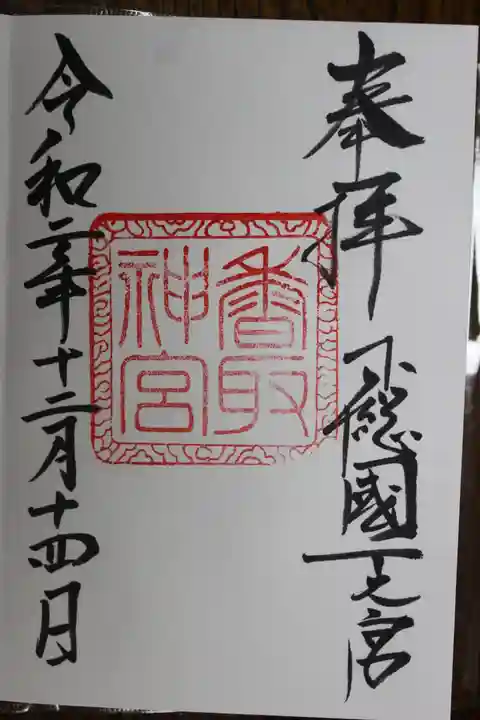 奉拝
下總國一之宮
香取
神宮
令和二年十二月十四日